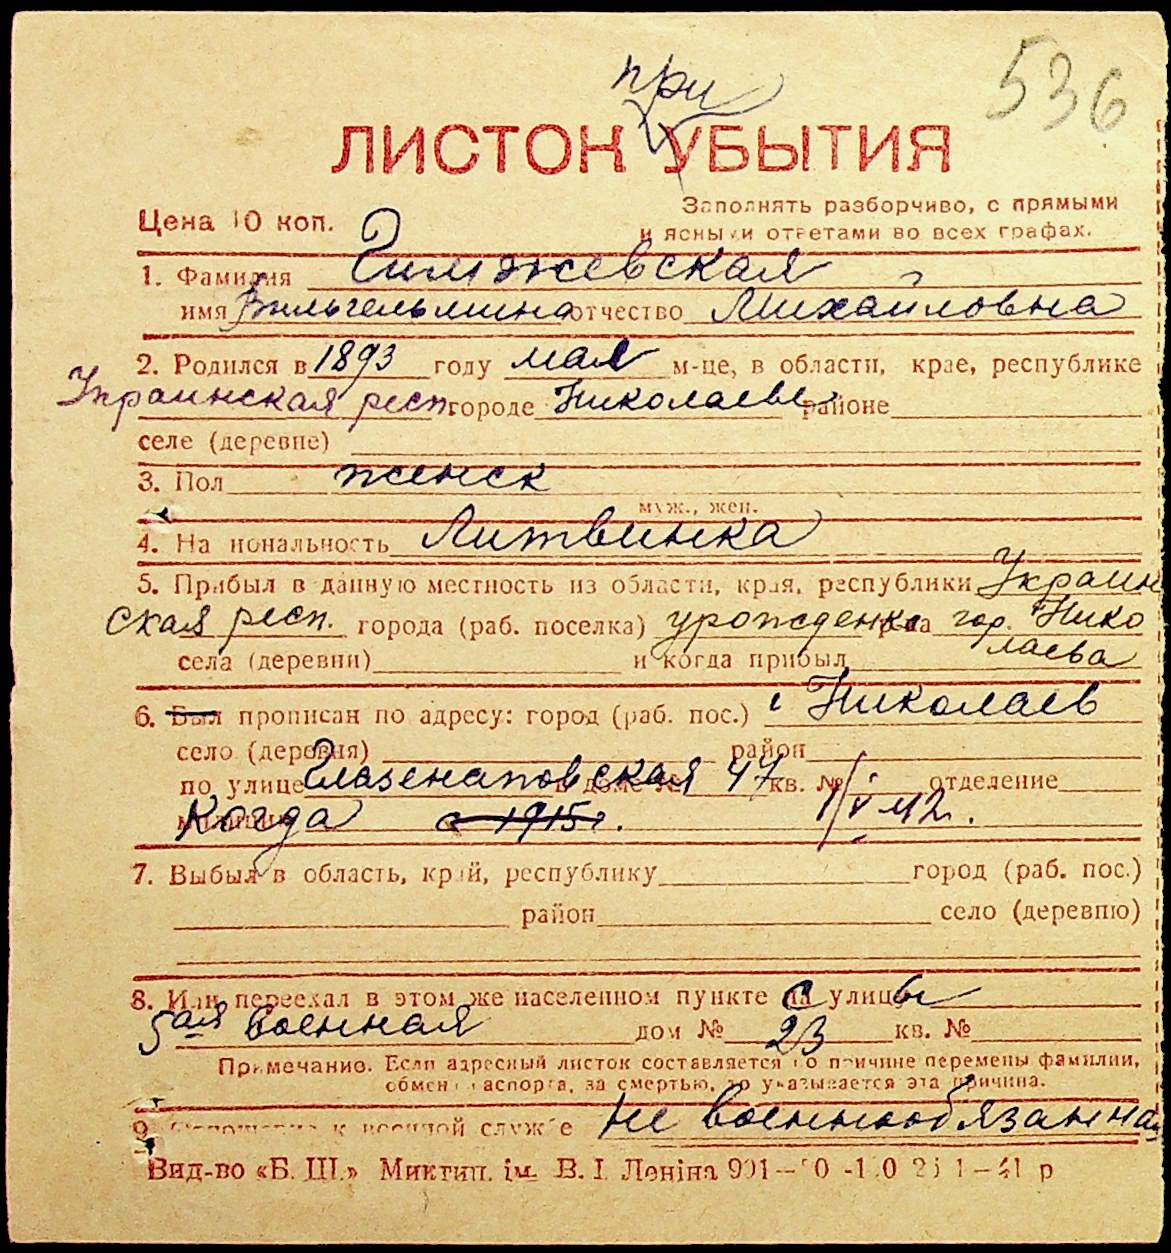 536
при
ЛИСТОК УБЫТИЯ
Цена 10 коп.
Заполнять разборчиво, с прямыми
и ясными ответами во всех графах.
1. Фамилия Гимжевская
имя Вильгельмина отчество Михайловна
2. Родился в 1893 году мая м-це, в области, крае, республике
Украинская респ городе Николаеве районе
селе (деревне)
3. Пол женск
муж., жен.
4. Национальность Литвинка
5. Прибыл в данную местность из области, края, республики Украин
ская респ. города (раб. поселка) урожденка р-на гор. Нико
лаева
села (деревни) и когда прибыл
6. Был прописан по адресу: город (раб. пос.) г Николаев
село (деревня) район
по улице Глазенаповская в доме № 47 кв. № отделение
милиции Когда с 1915 г. 1/V 42.
7. Выбыл в область, край, республику город (раб. пос.)
район село (деревню)
8. Или переехал в этом же населенном пункте на с улицу ы
5ая военная дом № 23 кв. №
Примечание. Если адресный листок составляется по причине перемены фамилии,
обмена паспорта, за смертью, то указывается эта причина.
9. Отношение к военной службе не военнообязанная
Вид-во «Б. Ш.» Миктип. ім. В. І. Леніна